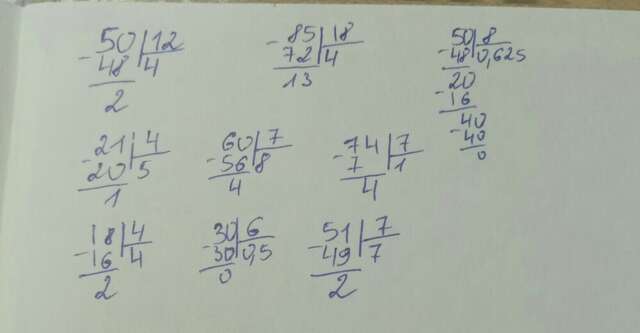 -50|12 -85|18 50|8
48 4 72 4 -48 0,625
2 13 20
-16
-40
40
0
-21|4 -60|7 -74|7
20 5 56 8 7 1
1 4 4
-18|4 -30|6 -51|7
16 4 30 0,5 49 7
2 0 2